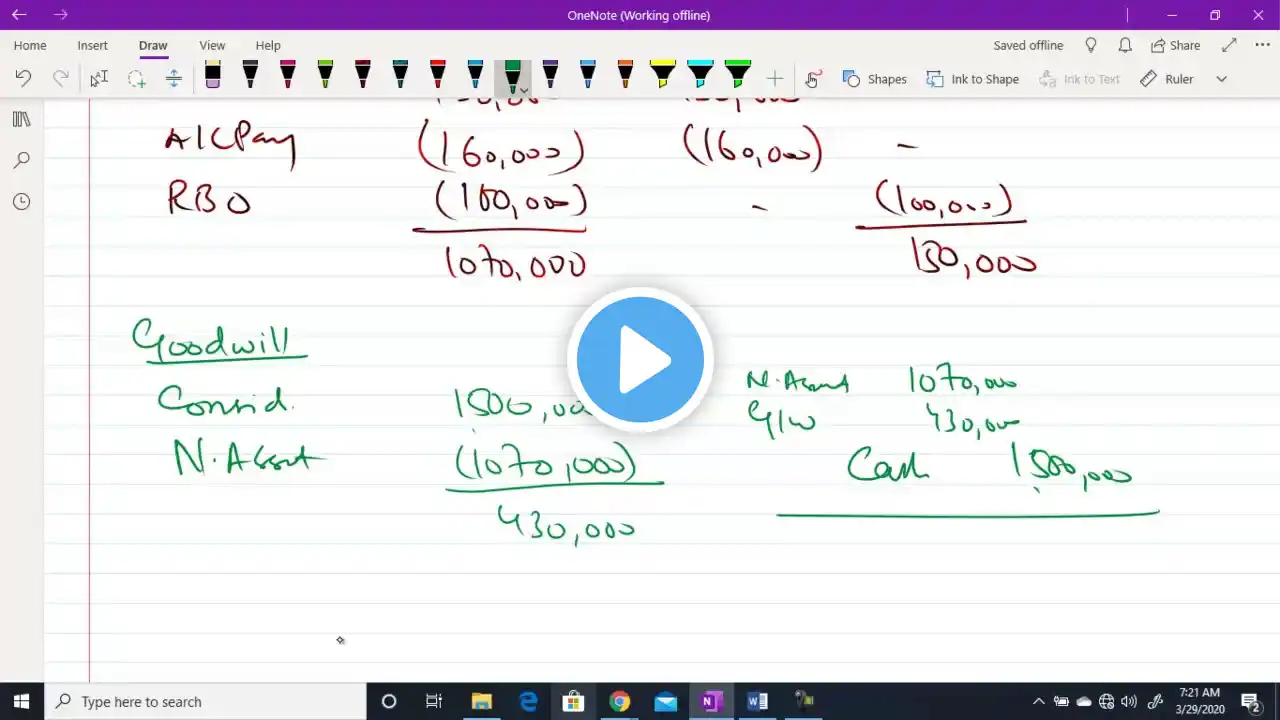 OneNote (Working offline)
Home Insert Draw View Help Saved offline Share
Shapes Ink to Shape Ink to Text Ruler
A/C Pay (160,000) (160,000) -
RBO (100,000) - (100,000)
1070,000 150,000
Goodwill
Consid. 1500,000
N. Asset (1070,000)
430,000
N. Asset 1070,000
G/W 430,000
Cash 1500,000
Type here to search
7:21 AM
3/29/2020
2